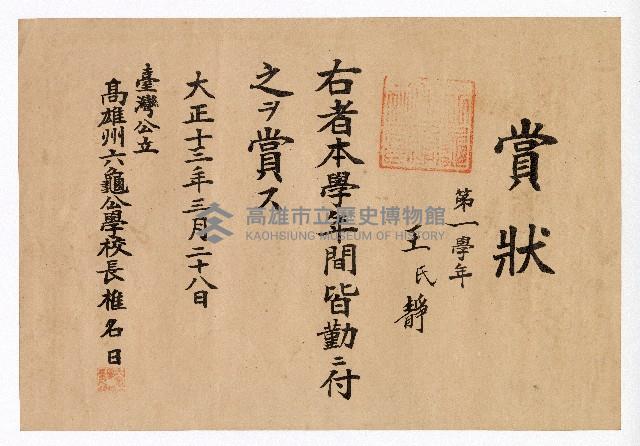 賞狀
第一學年
王氏靜
右者本學年間皆勤ニ付
之ヲ賞ス
大正十三年三月二十八日
臺灣公立
高雄州六龜公學校長椎名日
高雄市立歷史博物館
KAOHSIUNG MUSEUM OF HISTORY